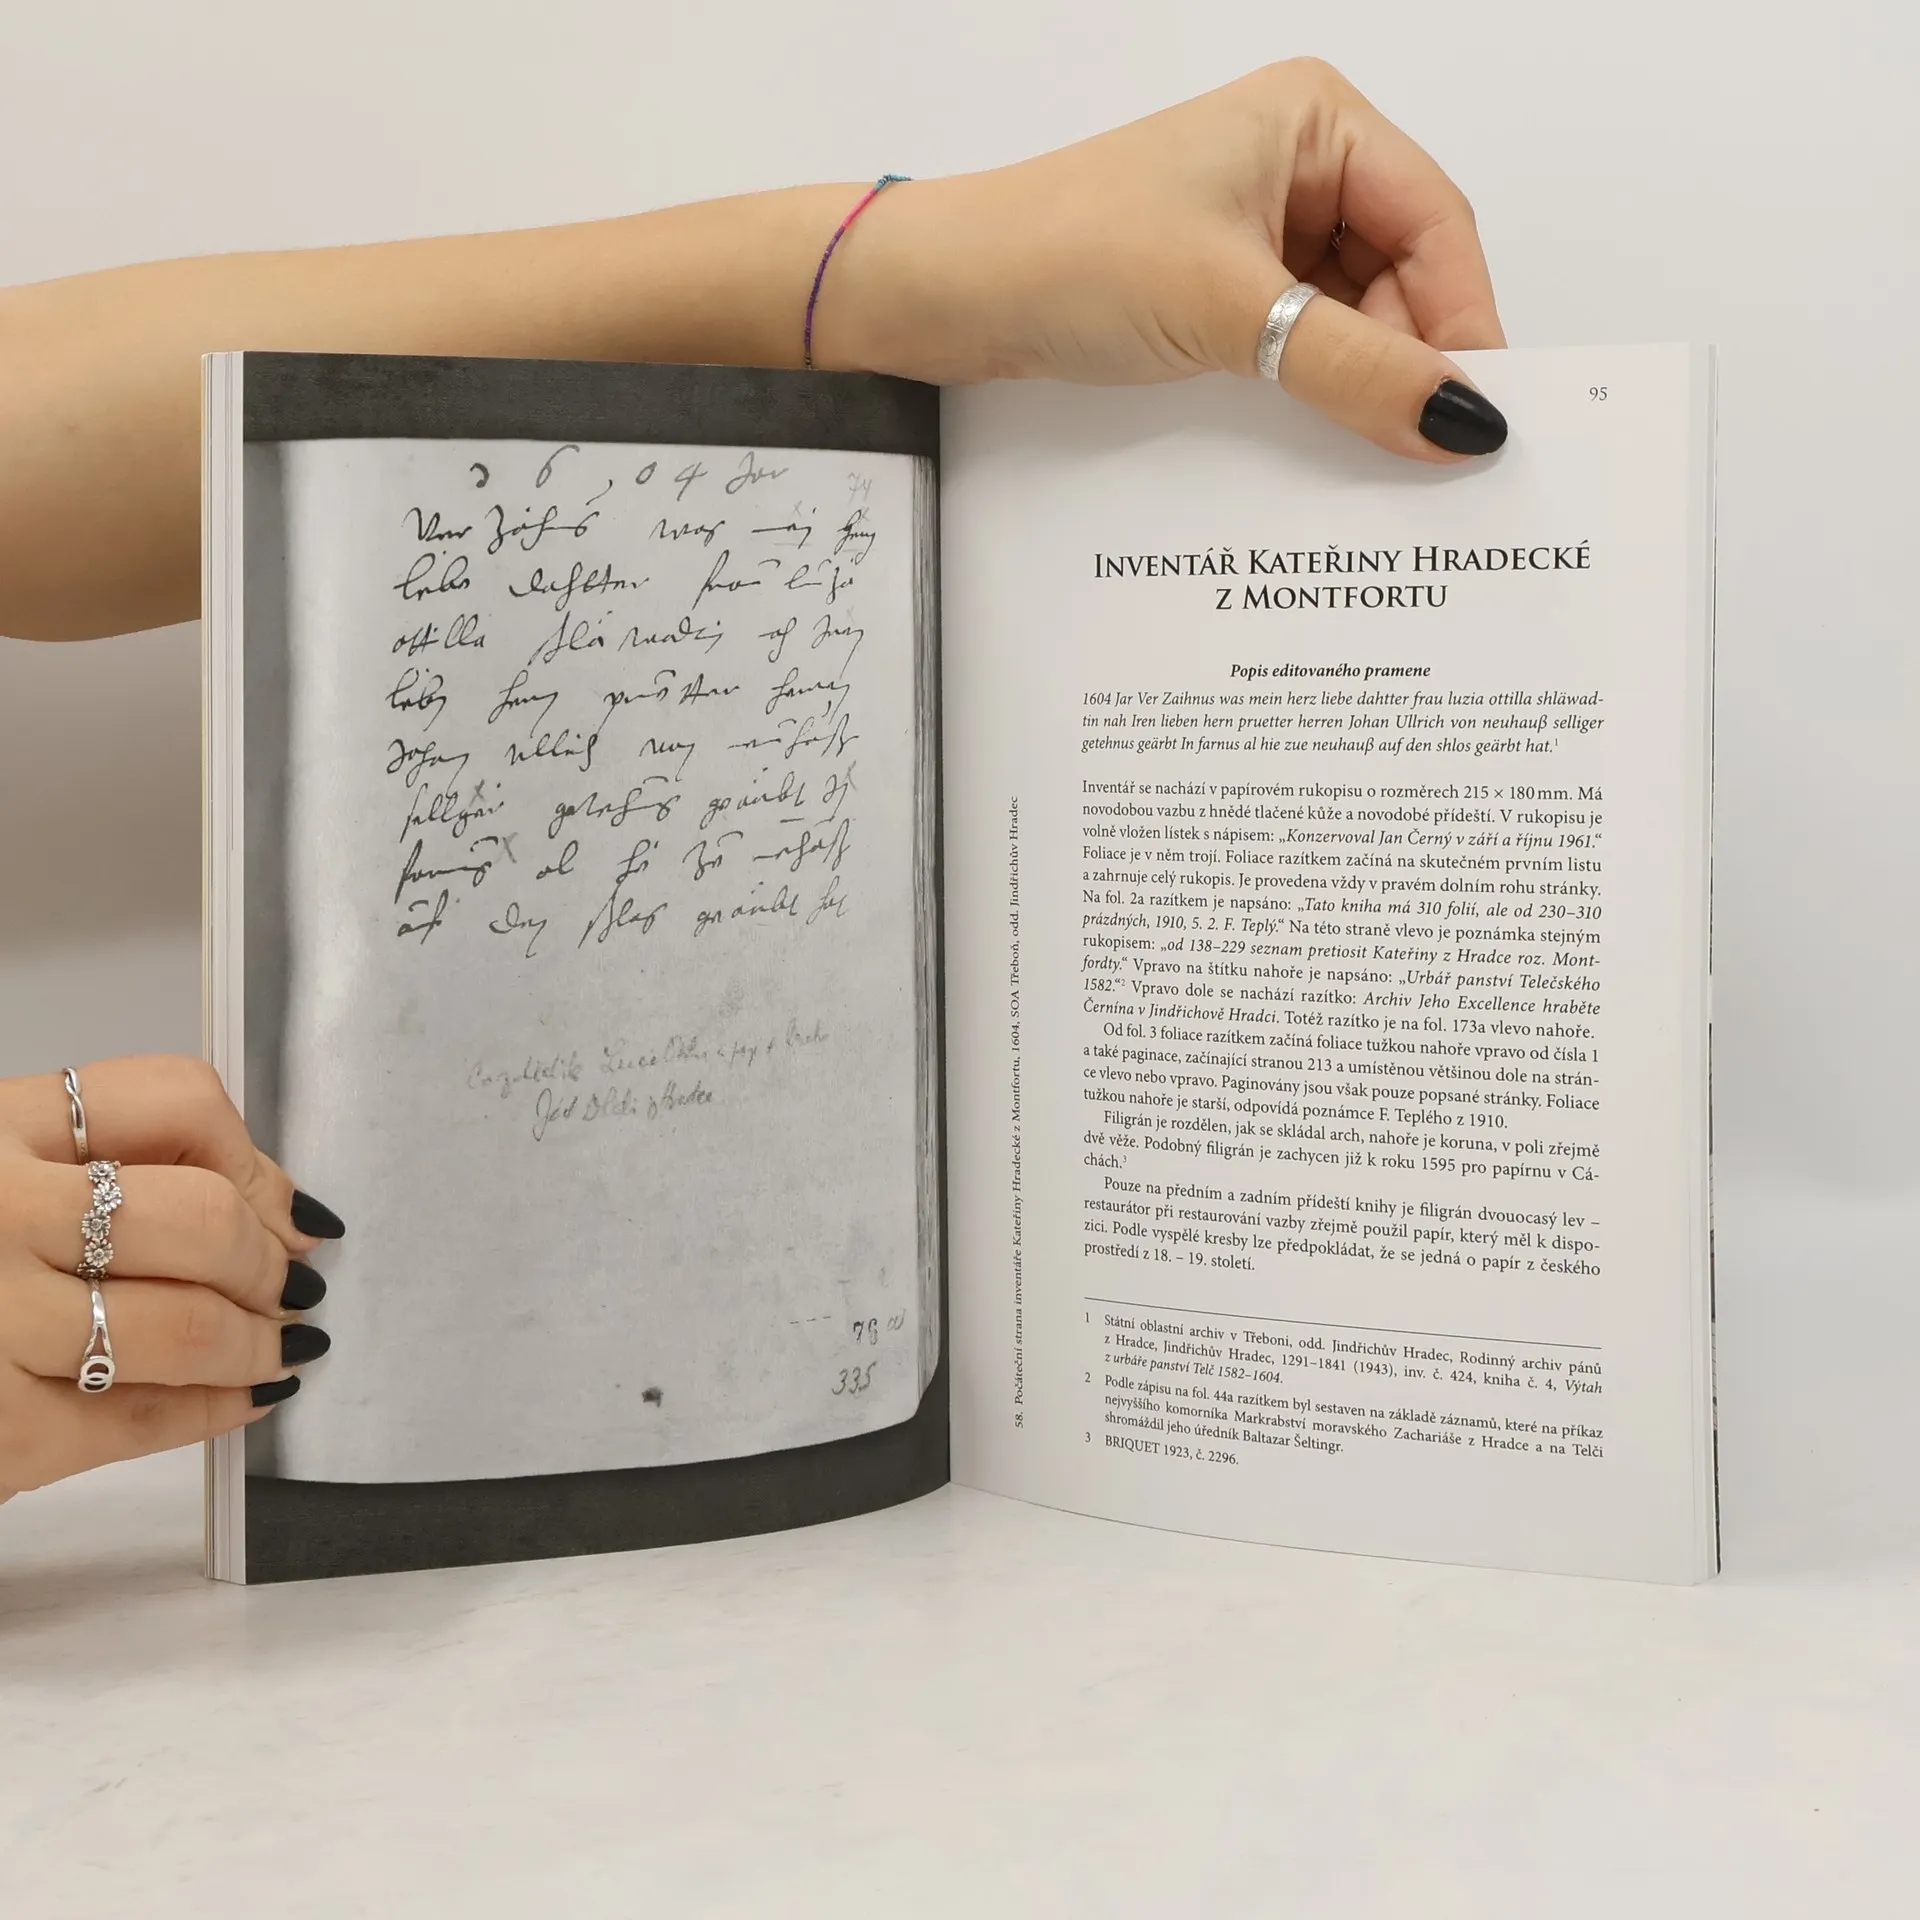 1604 Jar
74
Ver Zaihnus was mein herz
liebe dahtter frau luzia
ottilla shläwadtin nah Iren
lieben hern pruetter herren
Johan Ullrich von neuhauß
selliger getehnus geärbt In
farnus al hie zue neuhauß
auf den shlos geärbt hat
335
58. Počáteční strana inventáře Kateřiny Hradecké z Montfortu, 1604, SOA Třeboň, odd. Jindřichův Hradec
95
Inventář Kateřiny Hradecké
z Montfortu
Popis editovaného pramene
1604 Jar Ver Zaihnus was mein herz liebe dahtter frau luzia ottilla shläwad-
tin nah Iren lieben hern pruetter herren Johan Ullrich von neuhauß selliger
getehnus geärbt In farnus al hie zue neuhauß auf den shlos geärbt hat.¹
Inventář se nachází v papírovém rukopisu o rozměrech 215 × 180 mm. Má
novodobou vazbu z hnědé tlačené kůže a novodobé přídeští. V rukopisu je
volně vložen lístek s nápisem: „Konzervoval Jan Černý v září a říjnu 1961.“
Foliace je v něm trojí. Foliace razítkem začíná na skutečném prvním listu
a zahrnuje celý rukopis. Je provedena vždy v pravém dolním rohu stránky.
Na fol. 2a razítkem je napsáno: „Tato kniha má 310 folií, ale od 230–310
prázdných, 1910, 5. 2. F. Teplý.“ Na této straně vlevo je poznámka stejným
rukopisem: „od 138–229 seznam pretiosit Kateřiny z Hradce roz. Mont-
fordty.“ Vpravo na štítku nahoře je napsáno: „Urbář panství Telečského
1582.“² Vpravo dole se nachází razítko: Archiv Jeho Excellence hraběte
Černína v Jindřichově Hradci. Totéž razítko je na fol. 173a vlevo nahoře.
Od fol. 3 foliace razítkem začíná foliace tužkou nahoře vpravo od čísla 1
a také paginace, začínající stranou 213 a umístěnou většinou dole na strán-
ce vlevo nebo vpravo. Paginovány jsou však pouze popsané stránky. Foliace
tužkou nahoře je starší, odpovídá poznámce F. Teplého z 1910.
Filigrán je rozdělen, jak se skládal arch, nahoře je koruna, v poli zřejmě
dvě věže. Podobný filigrán je zachycen již k roku 1595 pro papírnu v Cá-
chách.³
Pouze na předním a zadním přídeští knihy je filigrán dvouocasý lev –
restaurátor při restaurování vazby zřejmě použil papír, který měl k dispo-
zici. Podle vyspělé kresby lze předpokládat, že se jedná o papír z českého
prostředí z 18. – 19. století.
1 Státní oblastní archiv v Třeboni, odd. Jindřichův Hradec, Rodinný archiv pánů
z Hradce, Jindřichův Hradec, 1291–1841 (1943), inv. č. 424, kniha č. 4, Výtah
z urbáře panství Telč 1582–1604.
2 Podle zápisu na fol. 44a razítkem byl sestaven na základě záznamů, které na příkaz
nejvyššího komorníka Markrabství moravského Zachariáše z Hradce a na Telči
shromáždil jeho úředník Baltazar Šeltingr.
3 BRIQUET 1923, č. 2296.